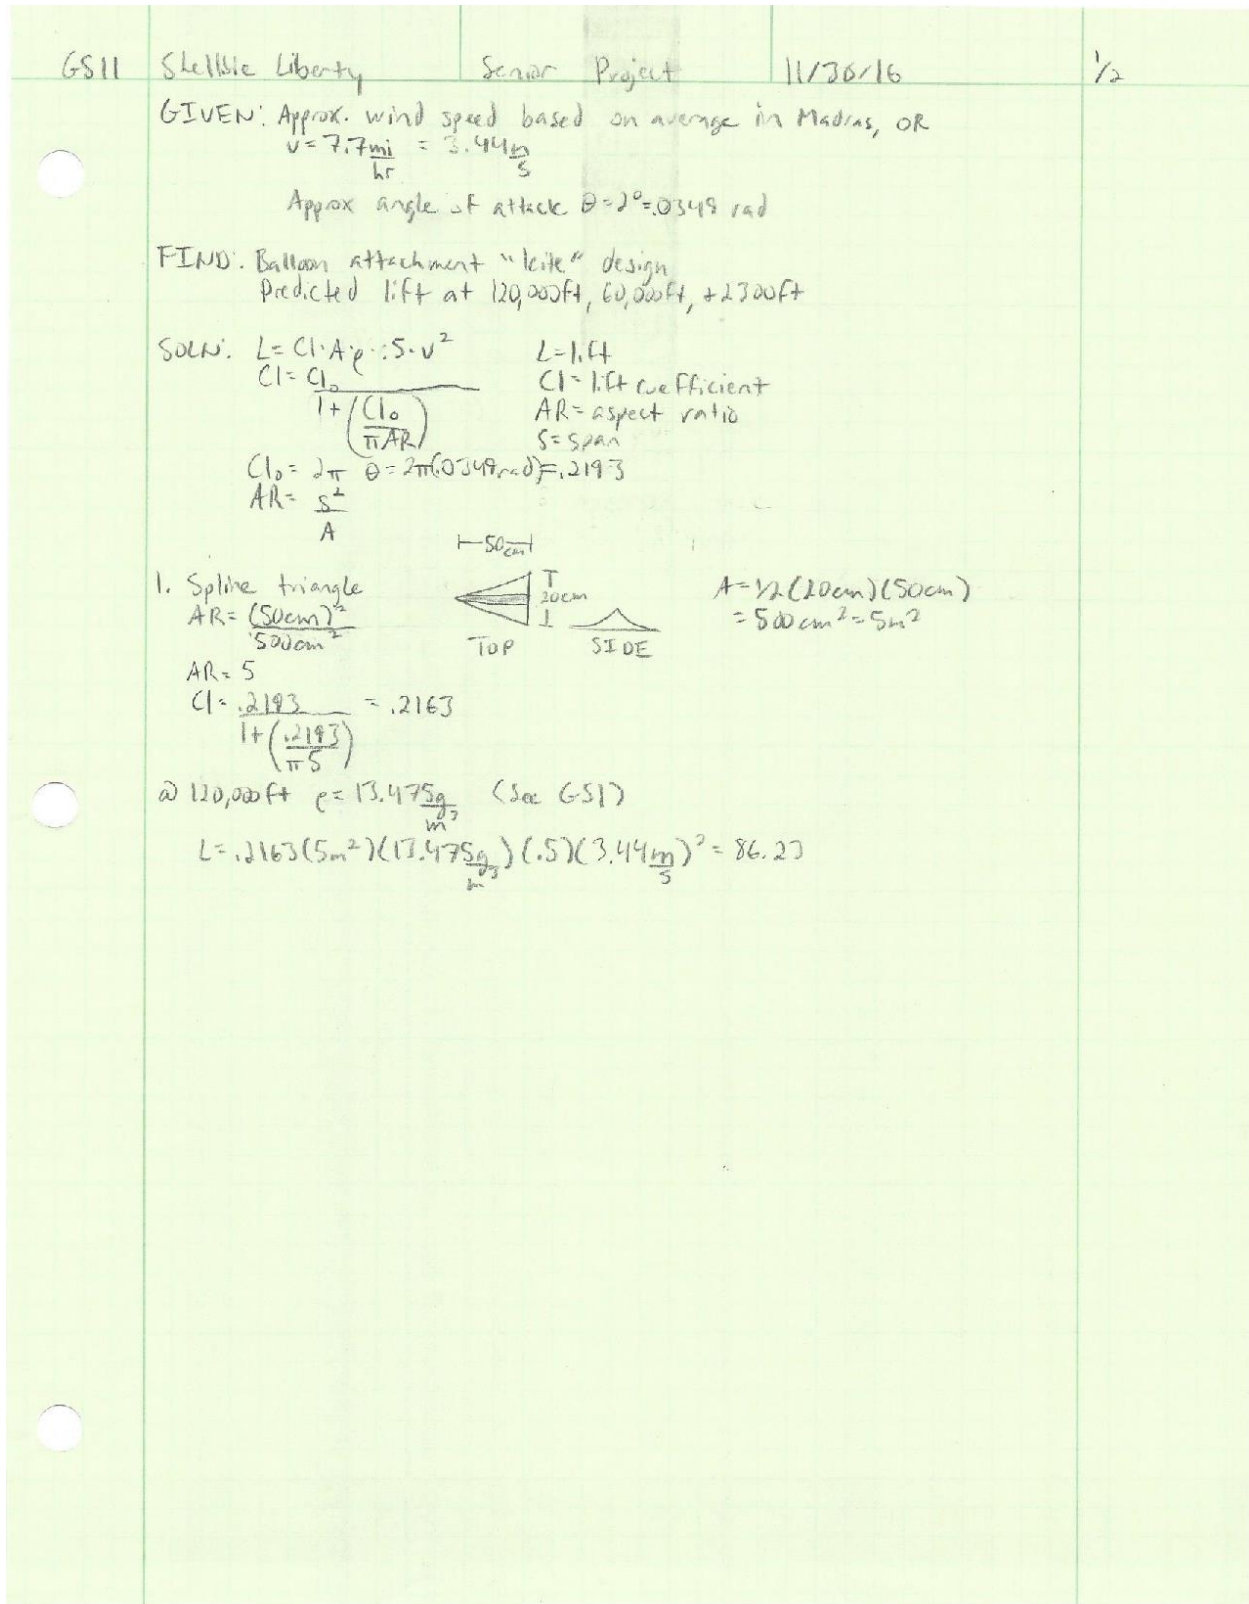 GS11 Shellbie Liberty Senior Project 11/30/16 1/2
GIVEN: Approx. wind speed based on average in Madras, OR
v = 7.7 mi/hr = 3.44 m/s
Approx angle of attack θ=2°=.0349 rad
FIND: Balloon attachment "kite" design
Predicted lift at 120,000ft, 60,000ft, + 2300ft
SOLN: L= Cl·A·ρ·.5·v² L=lift
Cl= Cl₀/(1+(Cl₀/πAR)) Cl= lift coefficient
AR= aspect ratio
S= span
Cl₀= 2π θ=2π(.0349rad)=.2193
AR= s²/A
50cm
1. Spline triangle 20cm A=1/2(20cm)(50cm)
AR= (50cm)²/500cm² TOP SIDE = 500cm²=5m²
AR= 5
Cl= .2193/(1+(.2193/π5)) = .2163
@ 120,000ft ρ= 13.475g/m³ (See GS1)
L= .2163(5m²)(13.475g/m³)(.5)(3.44m/s)²= 86.23